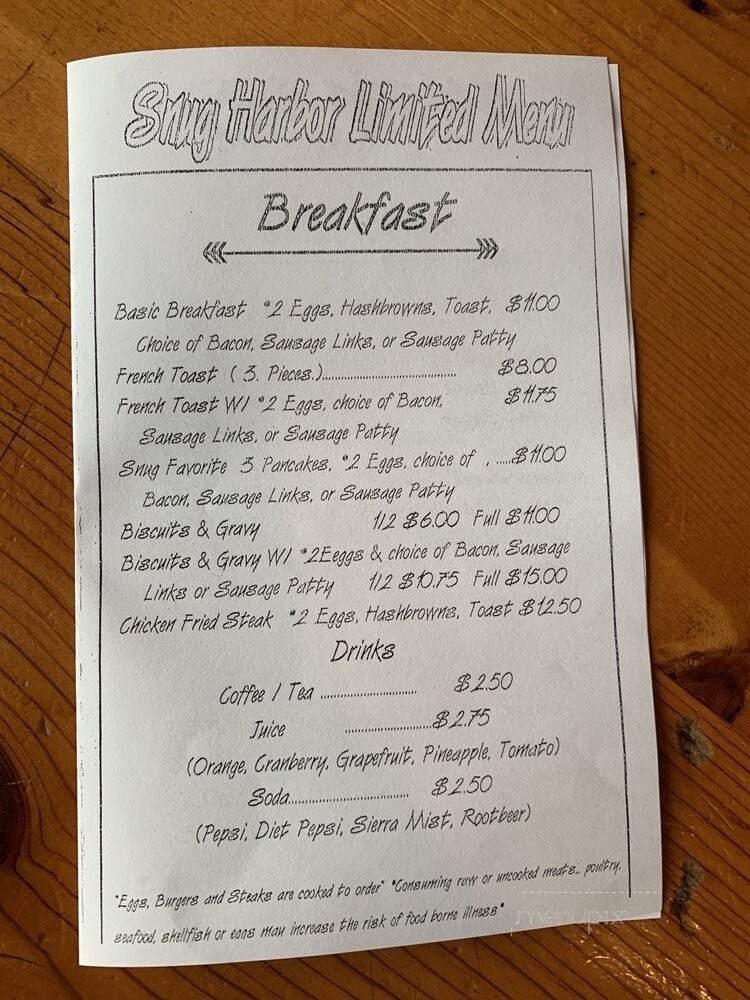 Snug Harbor Limited Menu
Breakfast
Basic Breakfast *2 Eggs, Hashbrowns, Toast, $11.00
Choice of Bacon, Sausage Links, or Sausage Patty
French Toast ( 3. Pieces.)............................................ $8.00
French Toast W/ *2 Eggs, choice of Bacon, $11.75
Sausage Links, or Sausage Patty
Snug Favorite 3 Pancakes, *2 Eggs, choice of , .....$11.00
Bacon, Sausage Links, or Sausage Patty
Biscuits & Gravy 1/2 $6.00 Full $11.00
Biscuits & Gravy W/ *2Eeggs & choice of Bacon, Sausage
Links or Sausage Patty 1/2 $10.75 Full $15.00
Chicken Fried Steak *2 Eggs, Hashbrowns, Toast $12.50
Drinks
Coffee / Tea ............................... $2.50
Juice ............................$2.75
(Orange, Cranberry, Grapefruit, Pineapple, Tomato)
Soda....................................... $2.50
(Pepsi, Diet Pepsi, Sierra Mist, Rootbeer)
*Eggs, Burgers and Steaks are cooked to order* *Consuming raw or uncooked meats., poultry,
seafood, shellfish or eggs may increase the risk of food borne illness*
menupix